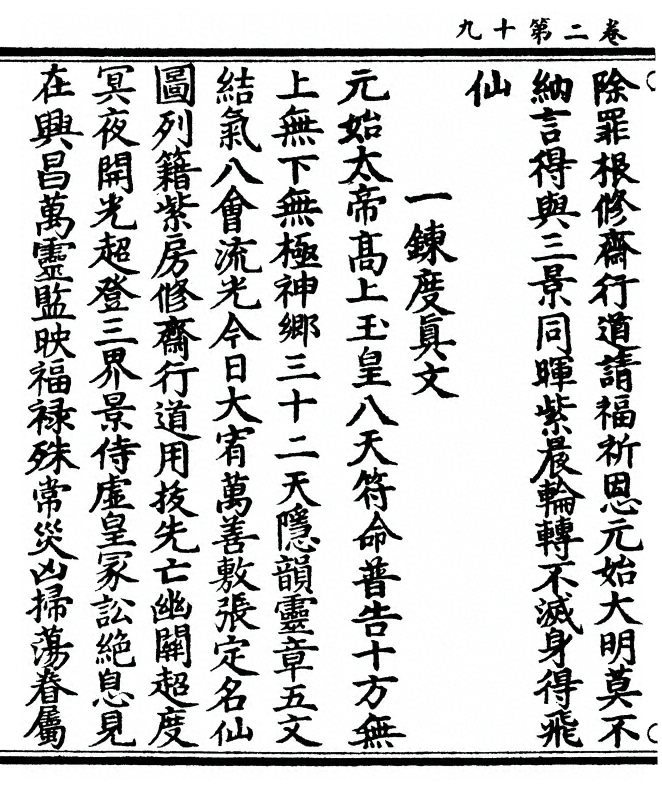 卷二第十九
除罪根修齋行道請福祈恩元始大明莫不
納言得與三景同暉紫晨輪轉不滅身得飛
仙
一鍊度眞文
元始太帝高上玉皇八天符命普告十方無
上無下無極神鄉三十二天隱韻靈章五文
結氣八會流光今日大宥萬善敷張定名仙
圖列籍紫房修齋行道用拔先亡幽關超度
冥夜開光超登三界景侍虛皇冢訟絕息見
在興昌萬靈監映福祿殊常災凶掃蕩眷屬